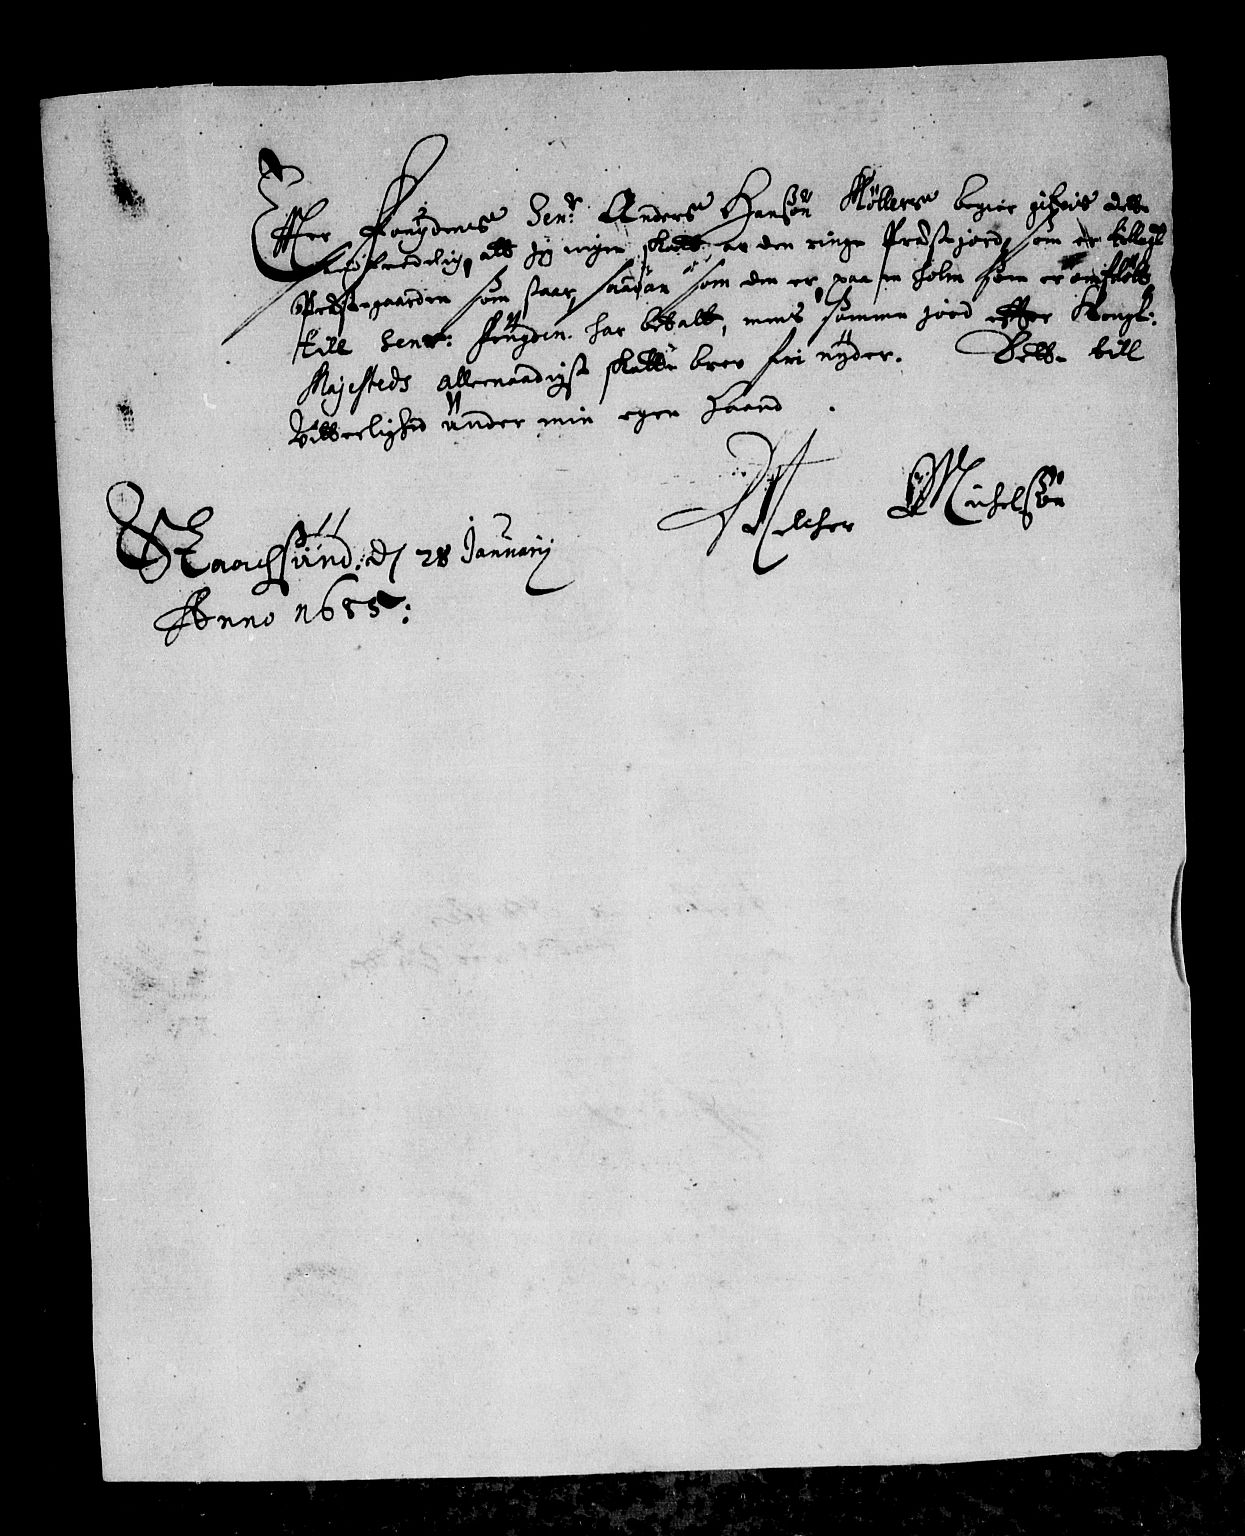 Effter Fougdenes Sen:r Anders Hansøn Møllers begier gifvis dette
att Jeg ingen skatt av den ringe Præstejord, som er tillagt
Præstegaarden som staar, saadan som den er paa en holm som er omfløtt
till Senr: Fougden har betalt, mens samme jord effter Kongl:
Majesteds allernaadigst skatte brev fri nyder. Dette till
Vitterlighed under min egen Haand
Melcher Michelsøn
Stachsund d/ 28 January
Anno 1655: